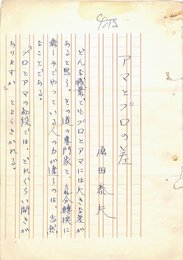 アマとプロの差
原田泰夫
どんな職業でもプロとアマには大きな差が
あると思う。その道の専門家と、気分転換に
楽しみでやっている人の力が違うのは、当然
なことである。
「プロとアマの初段では、どれくらい開きが
ありますか」とよくきかれる。